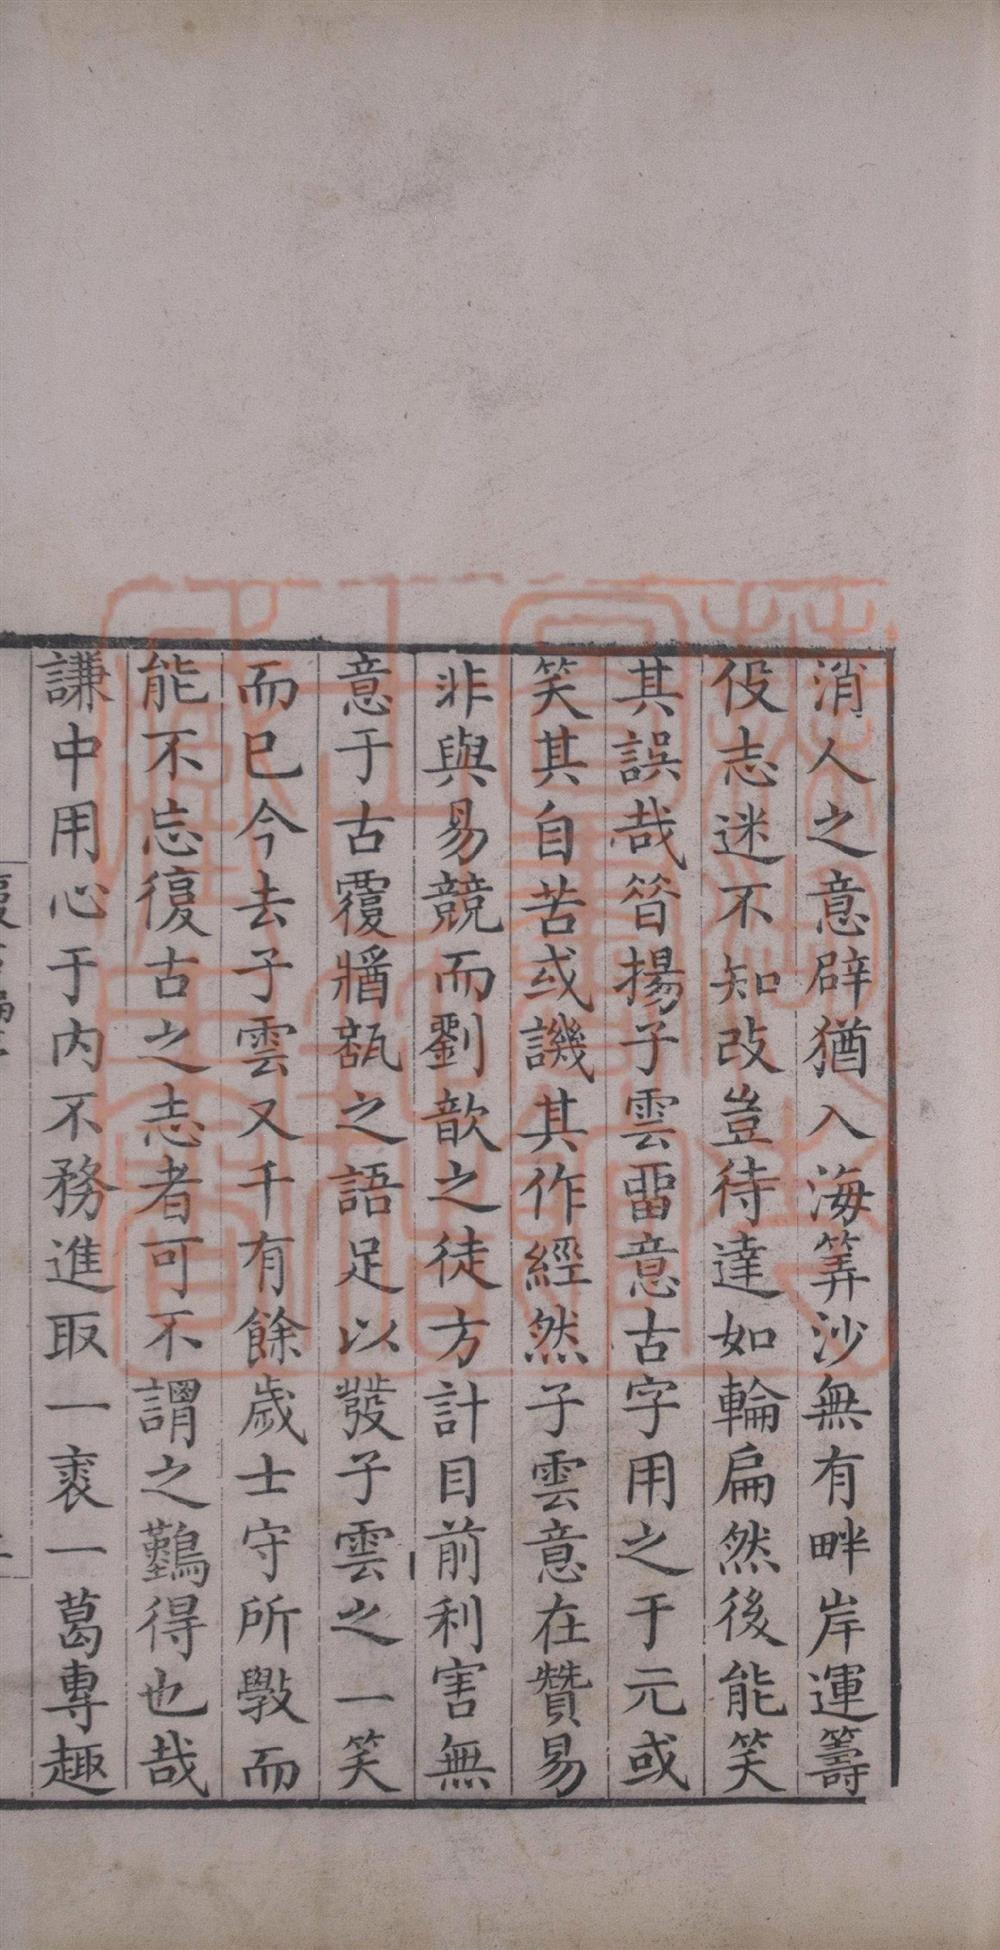 消人之意辟猶入海筭沙無有畔岸運籌
役志迷不知改豈待達如輪扁然後能笑
其誤哉昝揚子雲畱意古字用之于元或
笑其自苦或譏其作經然子雲意在贊易
非與易競而劉歆之徒方計目前利害無
意于古覆牆瓿之語足以發子雲之一笑
而巳今去子雲又千有餘歲士守所斅而
能不忘復古之志者可不謂之鷬得也哉
謙中用心于内不務進取一裘一葛專趣